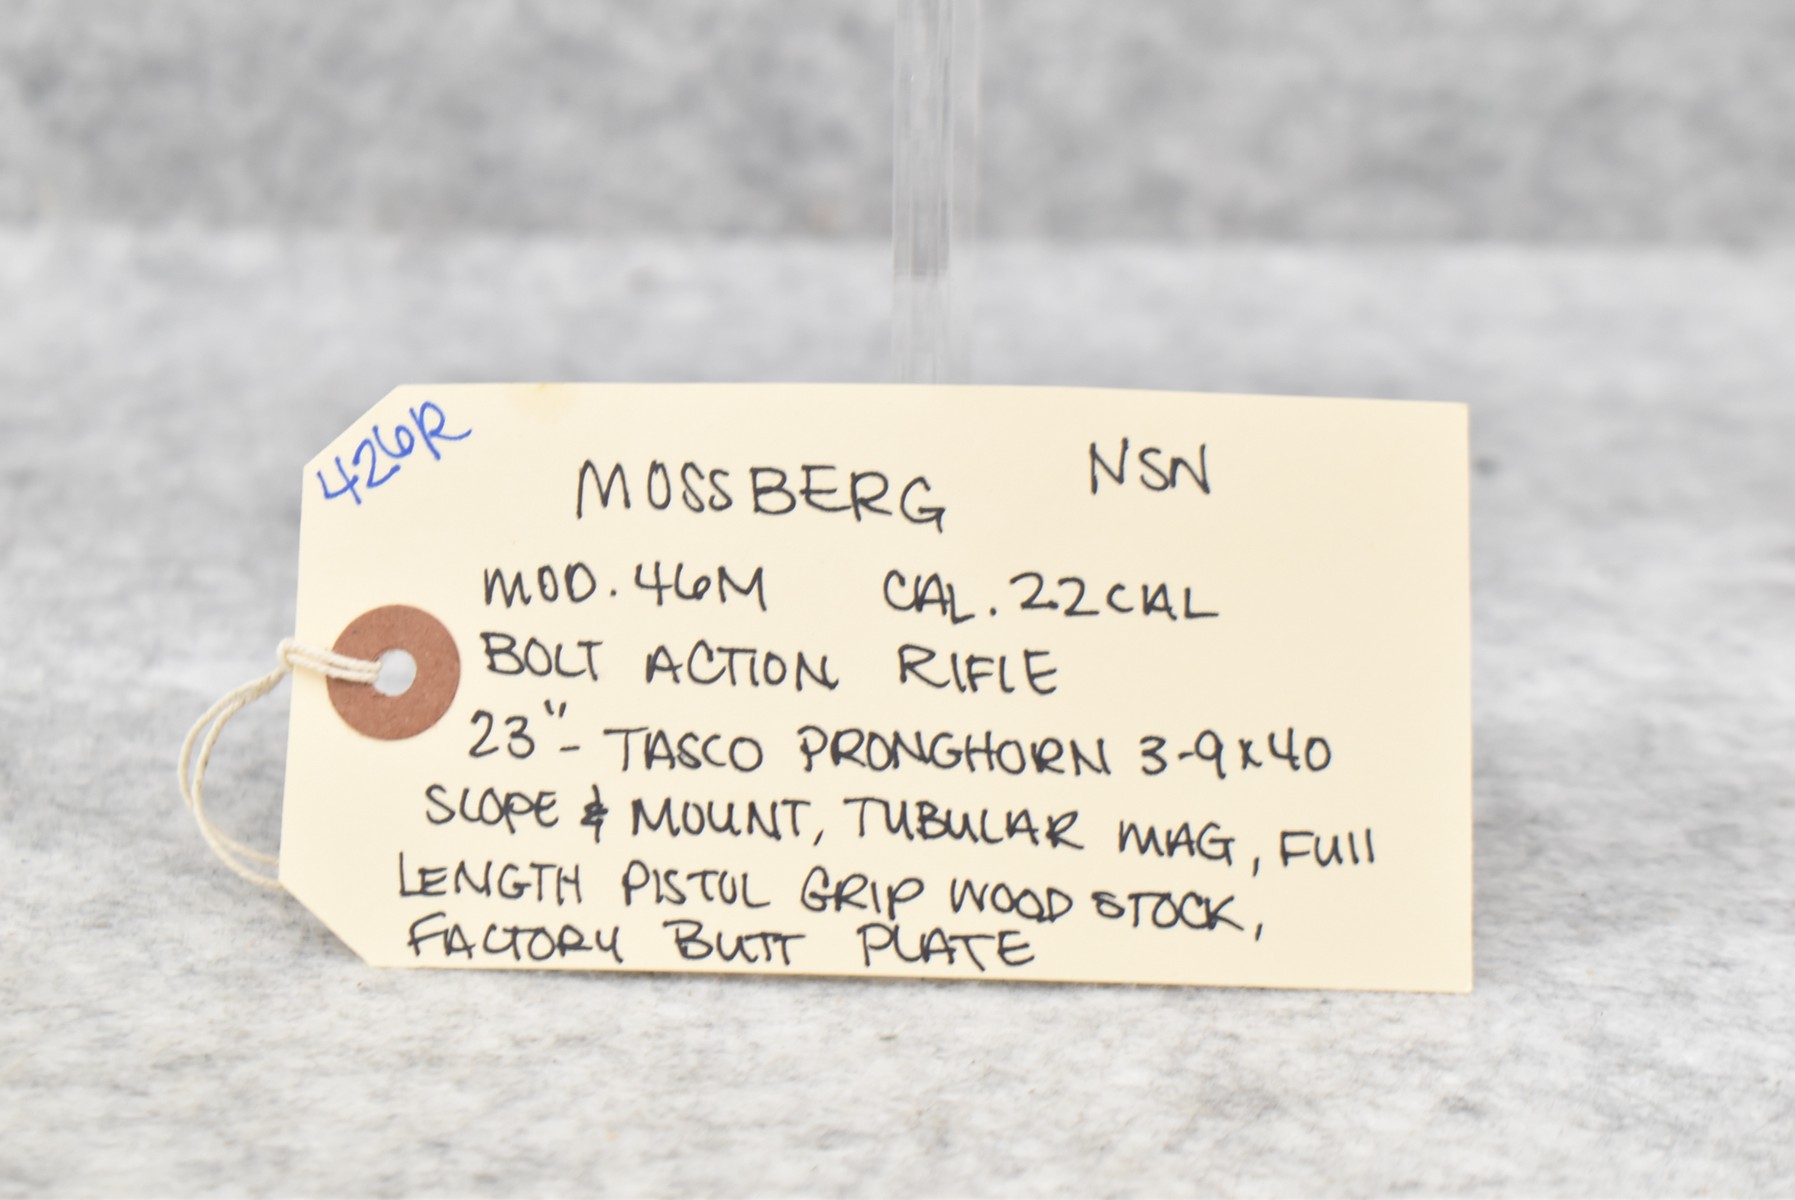 426R
MOSSBERG NSN
MOD. 46M CAL. 22CAL
BOLT ACTION RIFLE
23"- TASCO PRONGHORN 3-9x40
SCOPE & MOUNT, TUBULAR MAG, FULL
LENGTH PISTOL GRIP WOOD STOCK,
FACTORY BUTT PLATE